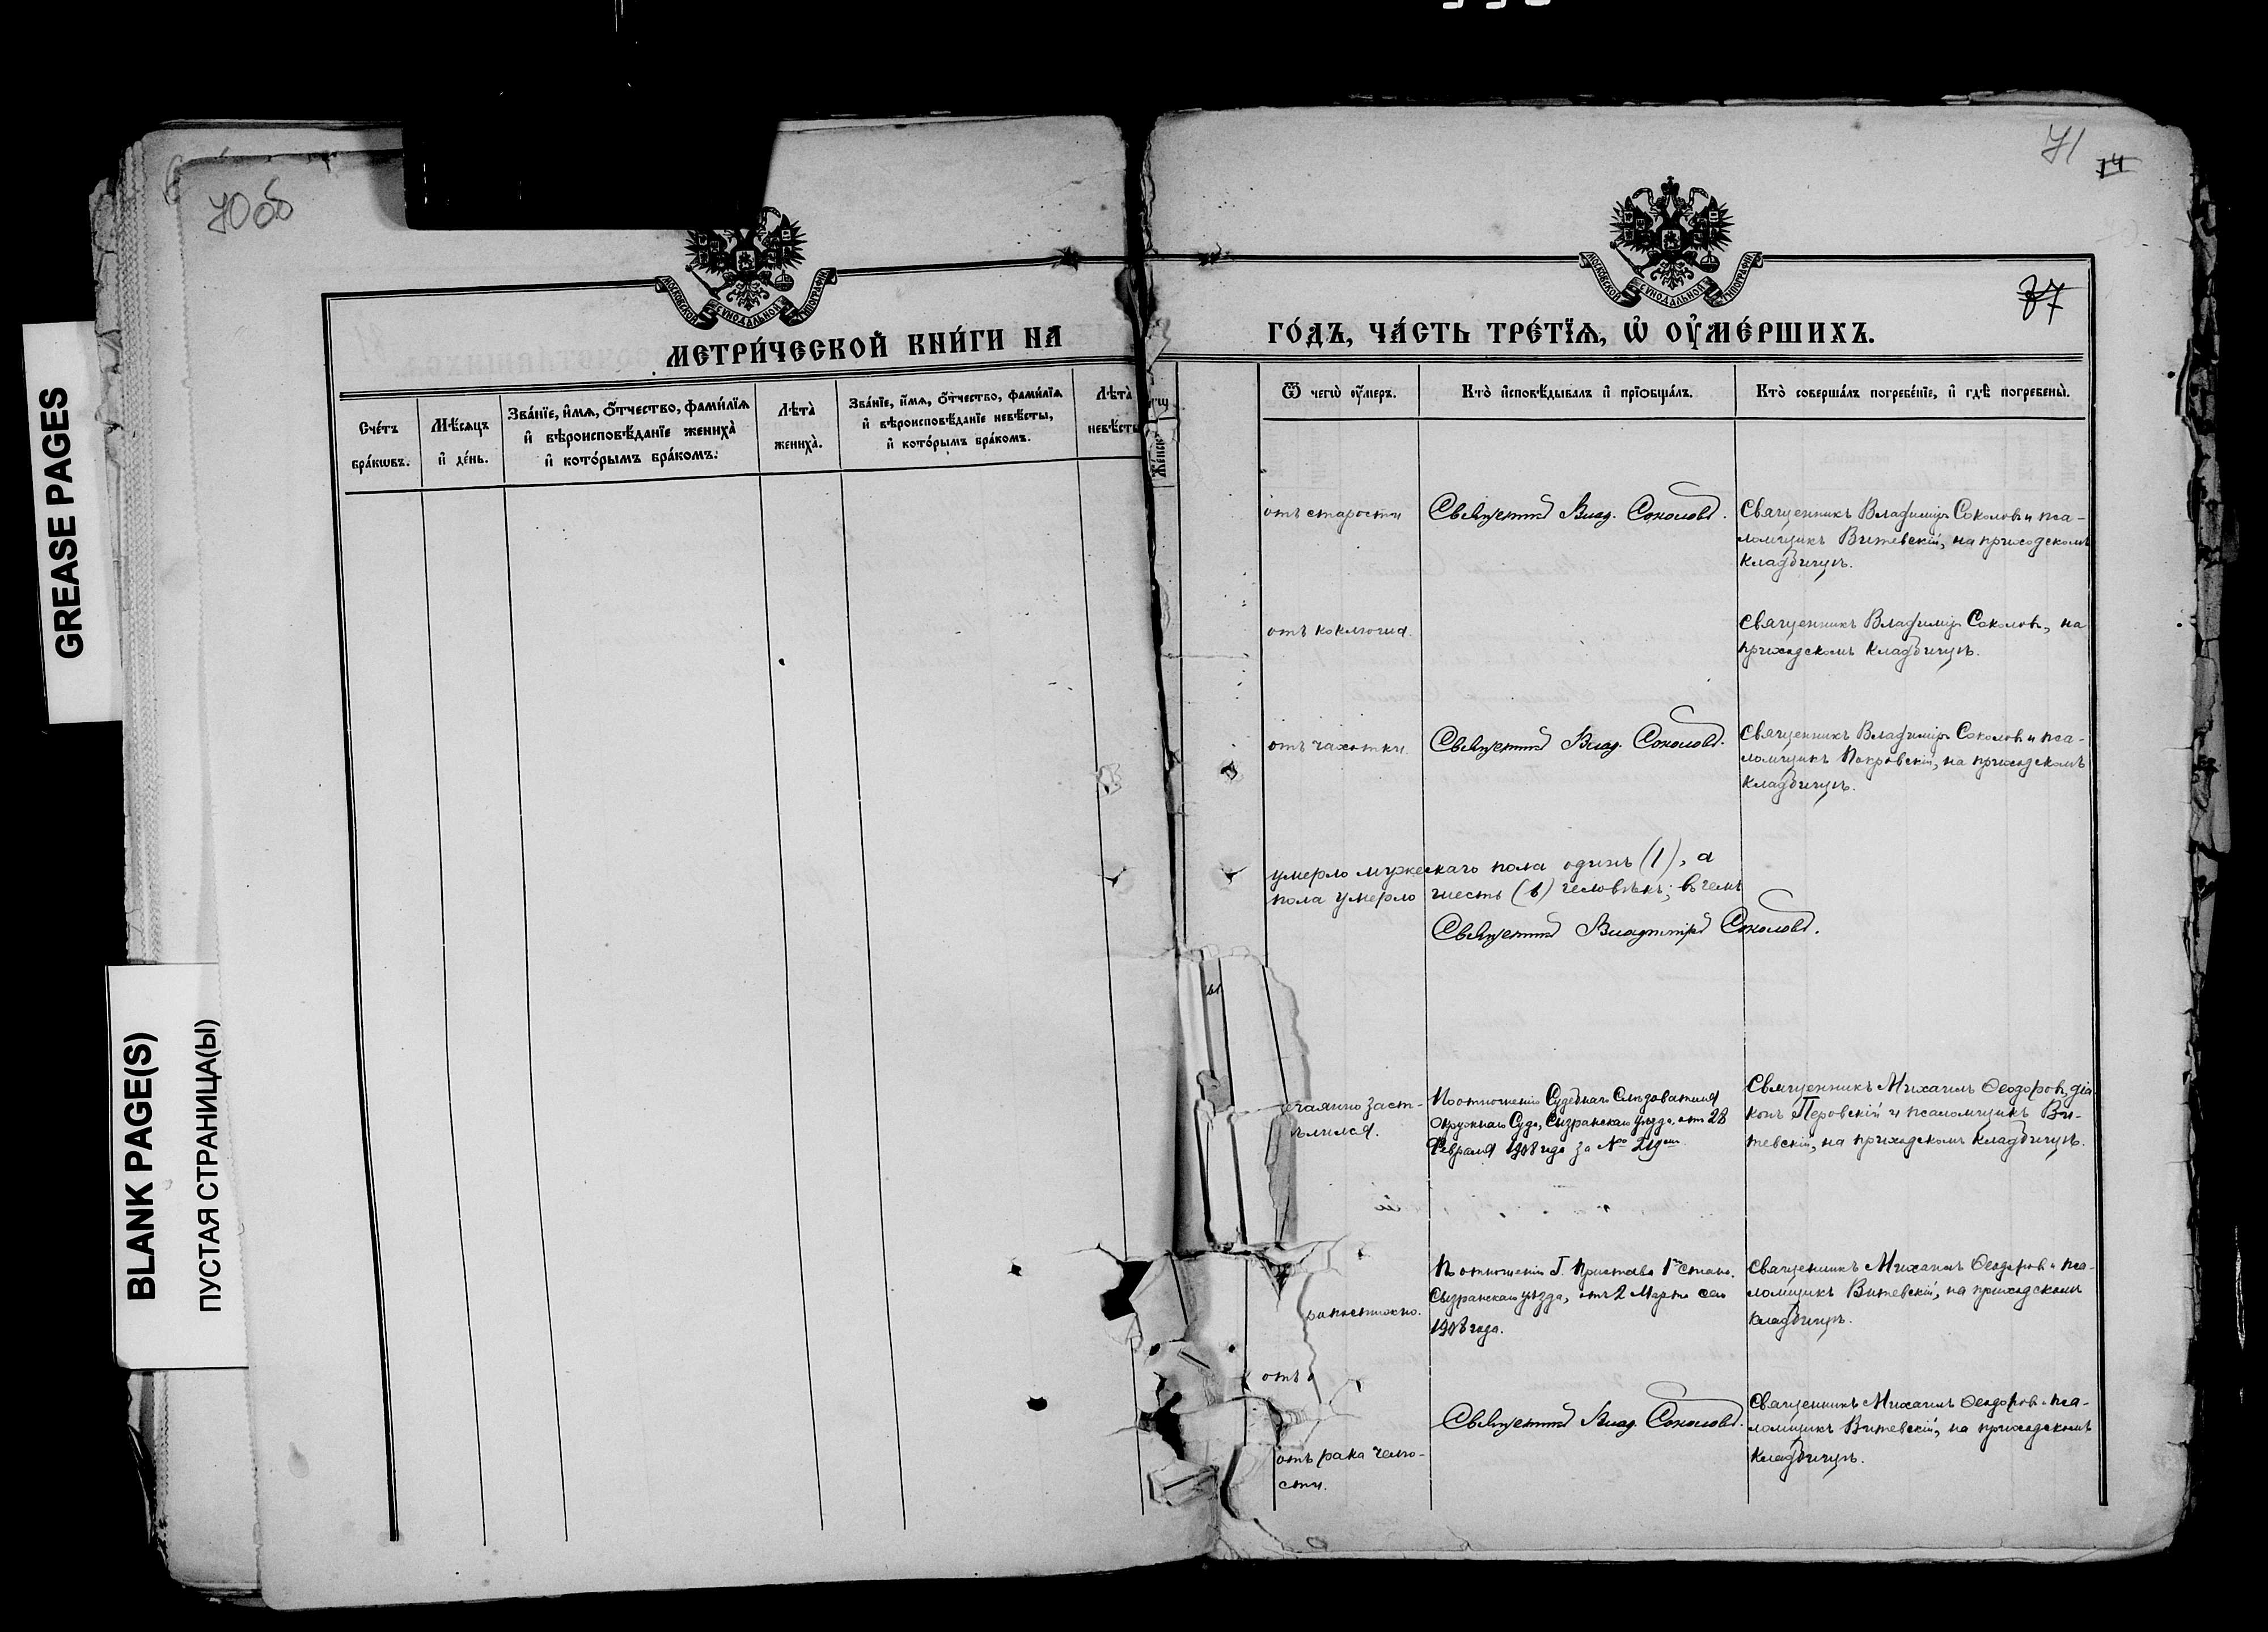 70 об
71
14
37
GREASE PAGES
BLANK PAGE(S)
ПУСТАЯ СТРАНИЦА(Ы)
МОСКОВСКОЙ СѴНОДАЛЬНОЙ ТИПОГРАФІИ
МЕТРИ́ЧЕСКОЙ КНИ́ГИ НА
Сче́тъ бра́кѡвъ.
Мѣ́сяцъ и҆ де́нь.
Зва́нїе, и҆́мѧ, ѻ҆́тчество, фами́лїѧ
и҆ вѣроисповѣ́данїе жениха̀
и҆ кото́рымъ бра́комъ.
Лѣта̀ жениха̀.
Зва́нїе, и҆́мѧ, ѻ҆́тчество, фами́лїѧ
и҆ вѣроисповѣ́данїе невѣ́сты,
и҆ кото́рымъ бра́комъ.
Лѣта̀
невѣ́сты
МОСКОВСКОЙ СѴНОДАЛЬНОЙ ТИПОГРАФІИ
ГО́ДЪ, ЧА́СТЬ ТРЕ́ТЇѦ, Ѡ҆ ОУ҆МЕ́РШИХЪ.
Же́нск
Ѿ чегѡ̀ оу҆́меръ.
Кто̀ и҆сповѣ́дывалъ и҆ прїѻбща́лъ.
Кто̀ соверша́лъ погребе́нїе, и҆ гдѣ̀ погребены̀.
отъ старости
Священникъ Влад. Соколовъ.
Священникъ Владиміръ Соколовъ и пса-
ломщикъ Витевскій, на приходскомъ
кладбищѣ.
отъ коклюша.
Священникъ Владиміръ Соколовъ, на
приходскомъ кладбищѣ.
отъ чахотки.
Священникъ Влад. Соколовъ.
Священникъ Владиміръ Соколовъ и пса-
ломщикъ Покровскій, на приходскомъ
кладбищѣ.
умерло мужескаго пола одинъ (1), а
пола умерло шесть (6) человѣкъ; въ чемъ
Священникъ Владиміръ Соколовъ.
ечаянно заст-
ѣлился.
По отношенію Судебнаго Слѣдователя
Окружнаго Суда, Сызранскаго уѣзда, отъ 28
Февраля 1908 года за №
Священникъ Михаилъ Ѳеодоровъ, діа
конъ Перовскій и псаломщикъ Ви-
тевскій, на приходскомъ кладбищѣ.
скоропостижно.
По отношенію Г. Пристава 1го стана,
Сызранскаго уѣзда, отъ 2 Марта сего
1908 года.
Священникъ Михаилъ Ѳеодоровъ и пса-
ломщикъ Витевскій, на приходскомъ
кладбищѣ.
отъ
отъ рака челю-
сти.
Священникъ Влад. Соколовъ.
Священникъ Михаилъ Ѳеодоровъ и пса-
ломщикъ Витевскій, на приходскомъ
кладбищѣ.